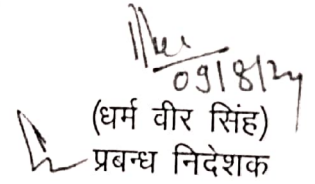 09/8/24
(धर्म वीर सिंह)
प्रबन्ध निदेशक